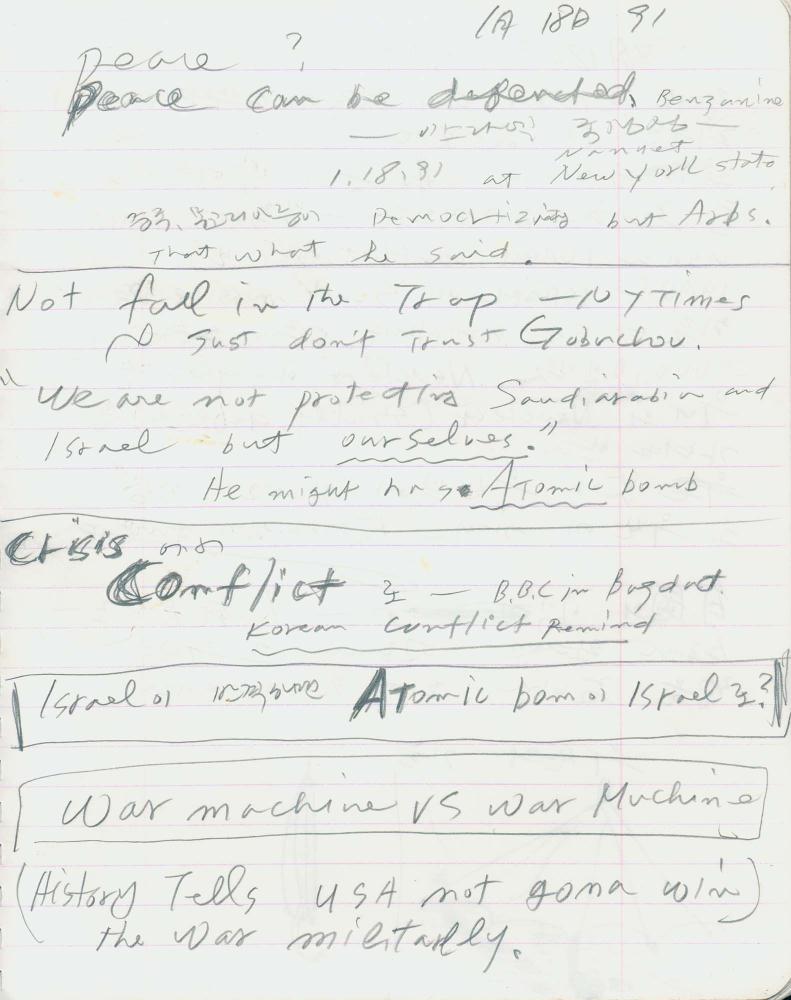 1A 18D 91
peace ?
Peace can be defended, Benzamine
1.18.91 at New York state
Nanuet
Democrtizing but Arbs.
That what he said.
Not fall in the Trap — NYTimes
Just don't Trust Gobuchov.
"We are not protecting Saudiarabia and
Israel but ourselves."
He might has Atomic bomb
Crisis
Conflict 로 — B.B.C in Bagdat.
Korean Conflict Remind
Israel 이 Atomic bom이 Israel 로?
War machine VS War Machine
(History Tells USA not gona win)
the War militarlly.